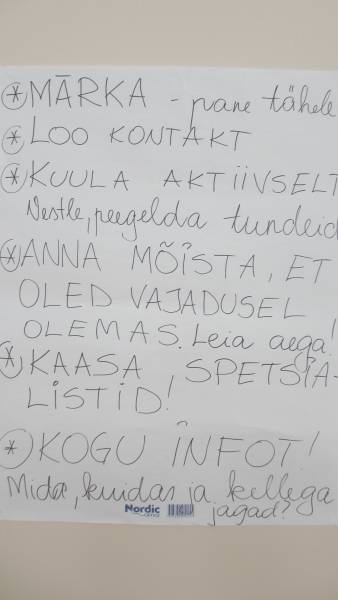 * MÄRKA - pane tähele
* LOO KONTAKT
* KUULA AKTIIVSELT
Vestle, peegelda tundeid
* ANNA MÕISTA, ET
OLED VAJADUSEL
OLEMAS. Leia aega!
* KAASA SPETSIA-
LISTID!
* KOGU INFOT!
Mida, kuidas ja kellega
jagad?
Nordic